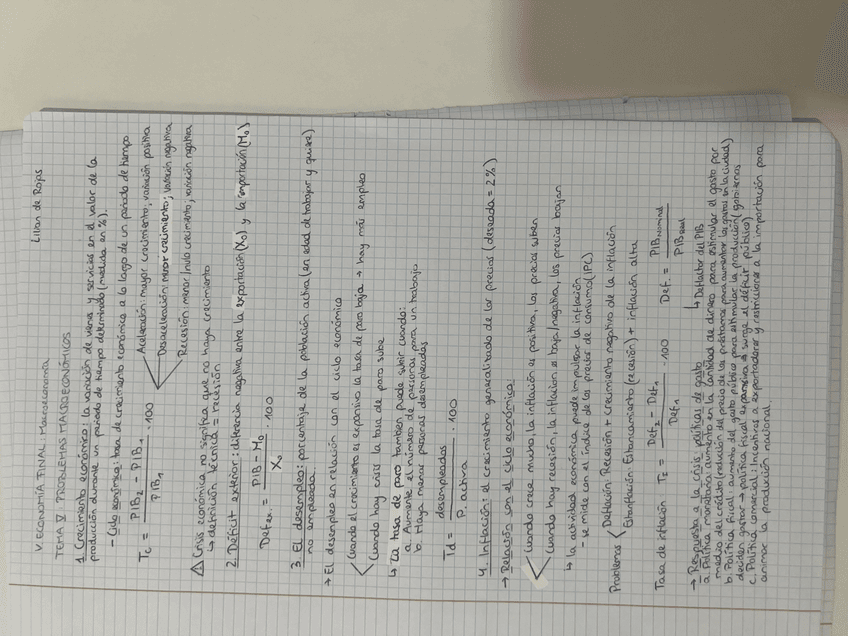 V. ECONOMÍA FINAL: Macroeconomía
Lilian de Rojas
TEMA V PROBLEMAS MACROECONÓMICOS
1. Crecimiento económico: la variación de bienes y servicios en el valor de la
producción durante un período de tiempo determinado (medida en %).
- Ciclo económico: tasa de crecimiento económico a lo largo de un período de tiempo
Tc = PIB2 - PIB1 / PIB1 · 100
Aceleración: mayor crecimiento; variación positiva
Desaceleración: menor crecimiento; variación negativa
Recesión: menor/nulo crecimiento; variación negativa
⚠ Crisis económica no significa que no haya crecimiento
↳ definición técnica = recesión
2. Déficit exterior: diferencia negativa entre la exportación (X0) y la importación (M0)
Def ex. = PIB - M0 / X0 · 100
3. El desempleo: porcentaje de la población activa (en edad de trabajar y quiere)
no empleada.
→ El desempleo en relación con el ciclo económico
Cuando el crecimiento es expansivo la tasa de paro baja → hay más empleo
Cuando hay crisis la tasa de paro sube
↳ La tasa de paro tambien puede subir cuando:
a. Aumente el número de personas para un trabajo
b. Haya menos personas desempleadas
Td = desempleados / P. activa · 100
4. Inflación: el crecimiento generalizado de los precios (deseada = 2%)
→ Relación con el ciclo económico:
Cuando crece mucho, la inflación es positiva, los precios suben
Cuando hay relesión, la inflacion es baja/negativa, los precios bajan
↳ la actividad económica puede impulsar la inflación
- se mide con el índice de los precios de consumo (IPC)
Problemas
Deflación: Recesión + crecimiento negativo de la inflación
Estanflación: Estancamiento (recesión) + inflación alta
Tasa de inflación Tc = Def2 - Def1 / Def1 · 100 Def. = PIB Nominal / PIB Real
↳ Deflactor del PIB
→ Respuesta a la crisis, políticas de gasto
a. Política monetaria: aumento en la cantidad de dinero para estimular el gasto por
medio del crédito (reducción del precio de los préstamos para aumentar los gastos en la ciudad)
b. Política fiscal: aumento del gasto público para estimular la producción (gobiernos
deciden gastar → política fiscal expansiva → surge el déficit público)
c. Política comercial: Incentivos a exportadores y restricciones a la importación para
animar la producción nacional.